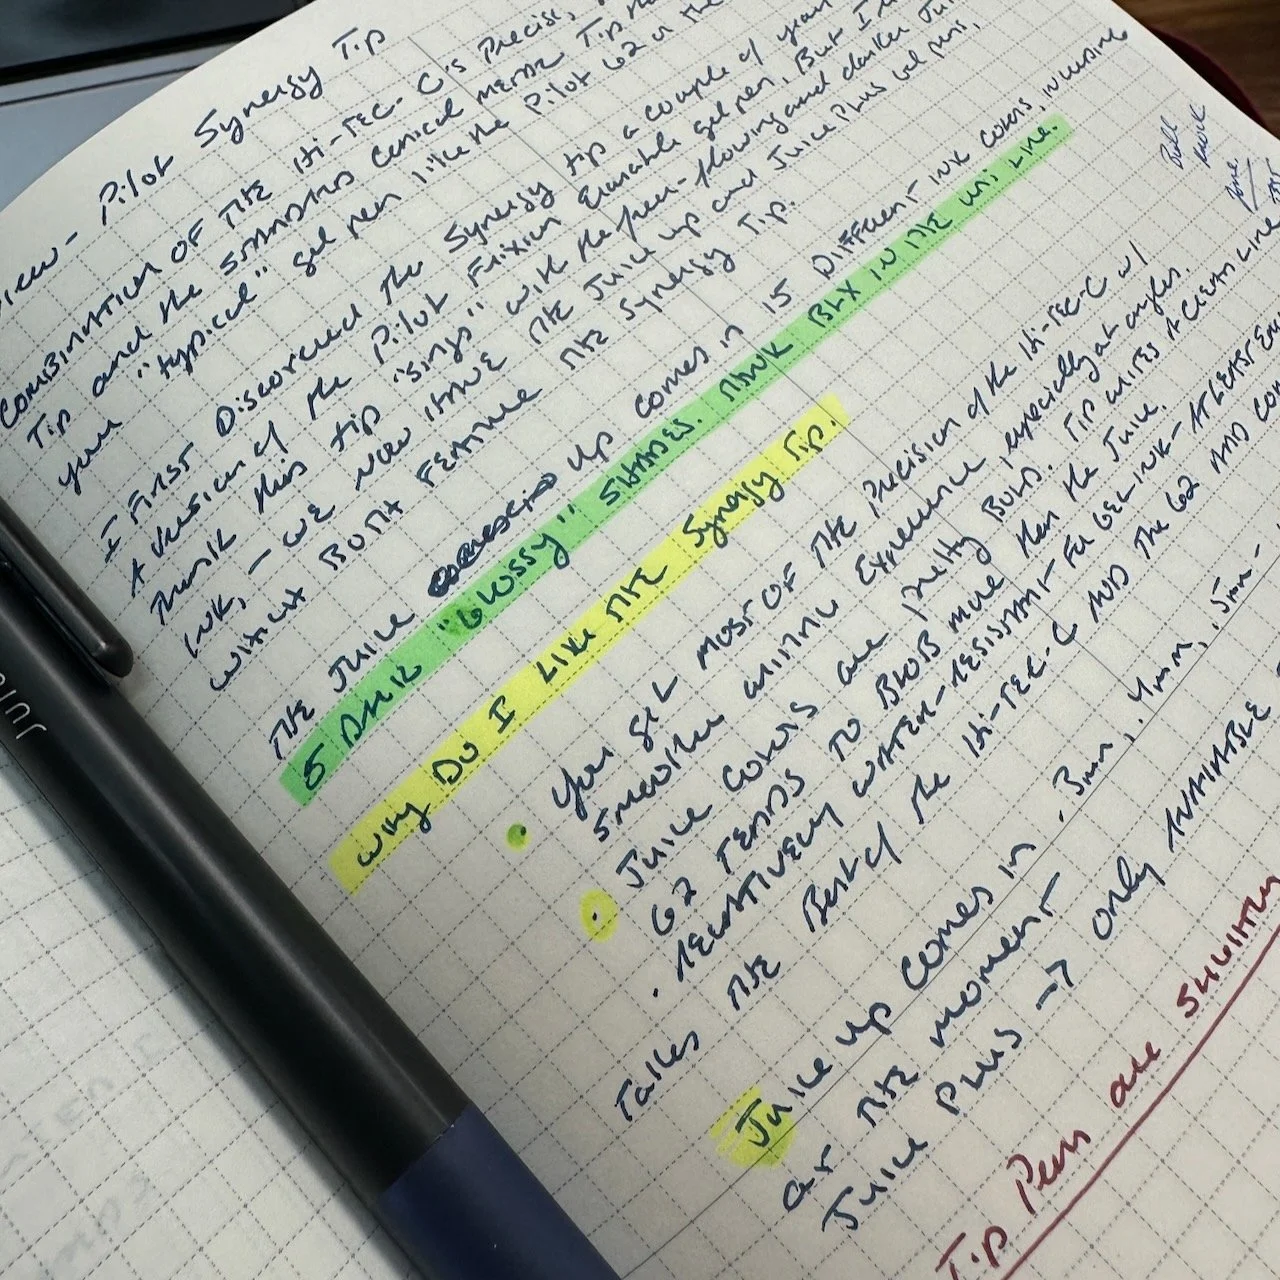 Pilot Synergy Tip
Combination of the Hi-TEC-C's Precise,
Tip and the standard conical metal Tip
your "typical" gel pen like the Pilot G2 or the
I First Discovered the Synergy tip a couple of years
A version of the Pilot Frixion Erasable gel pen. But I
Think this tip "sings" with the free-flowing and darker Jui
Ink, - we now have the Juice up and Juice Plus gel pens,
which Both Feature the Synergy Tip.
The Juice up comes in 15 Different ink colors, including
5 Dark "Glossy" Shades. Think BLX in the Uni Line.
Why Do I Like the Synergy Tip.
• You get most of the Precision of the Hi-TEC-C w/
Smoother writing Experience, especially at angles
• Juice colors are pretty Bold. Tip writes a clean line
G2 Tends to Blob more than the Juice.
• Relatively water-resistant for gel ink - At least
Takes the Best of the Hi-TEC-C And the G2 And
Juice up comes in .3mm, .4mm, .5mm -
at the moment
Juice Plus → only Available
Tip Pens are slightly
Ball
JUI